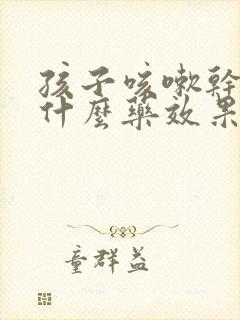 孩子咳嗽幹
什麼藥效果
童群益